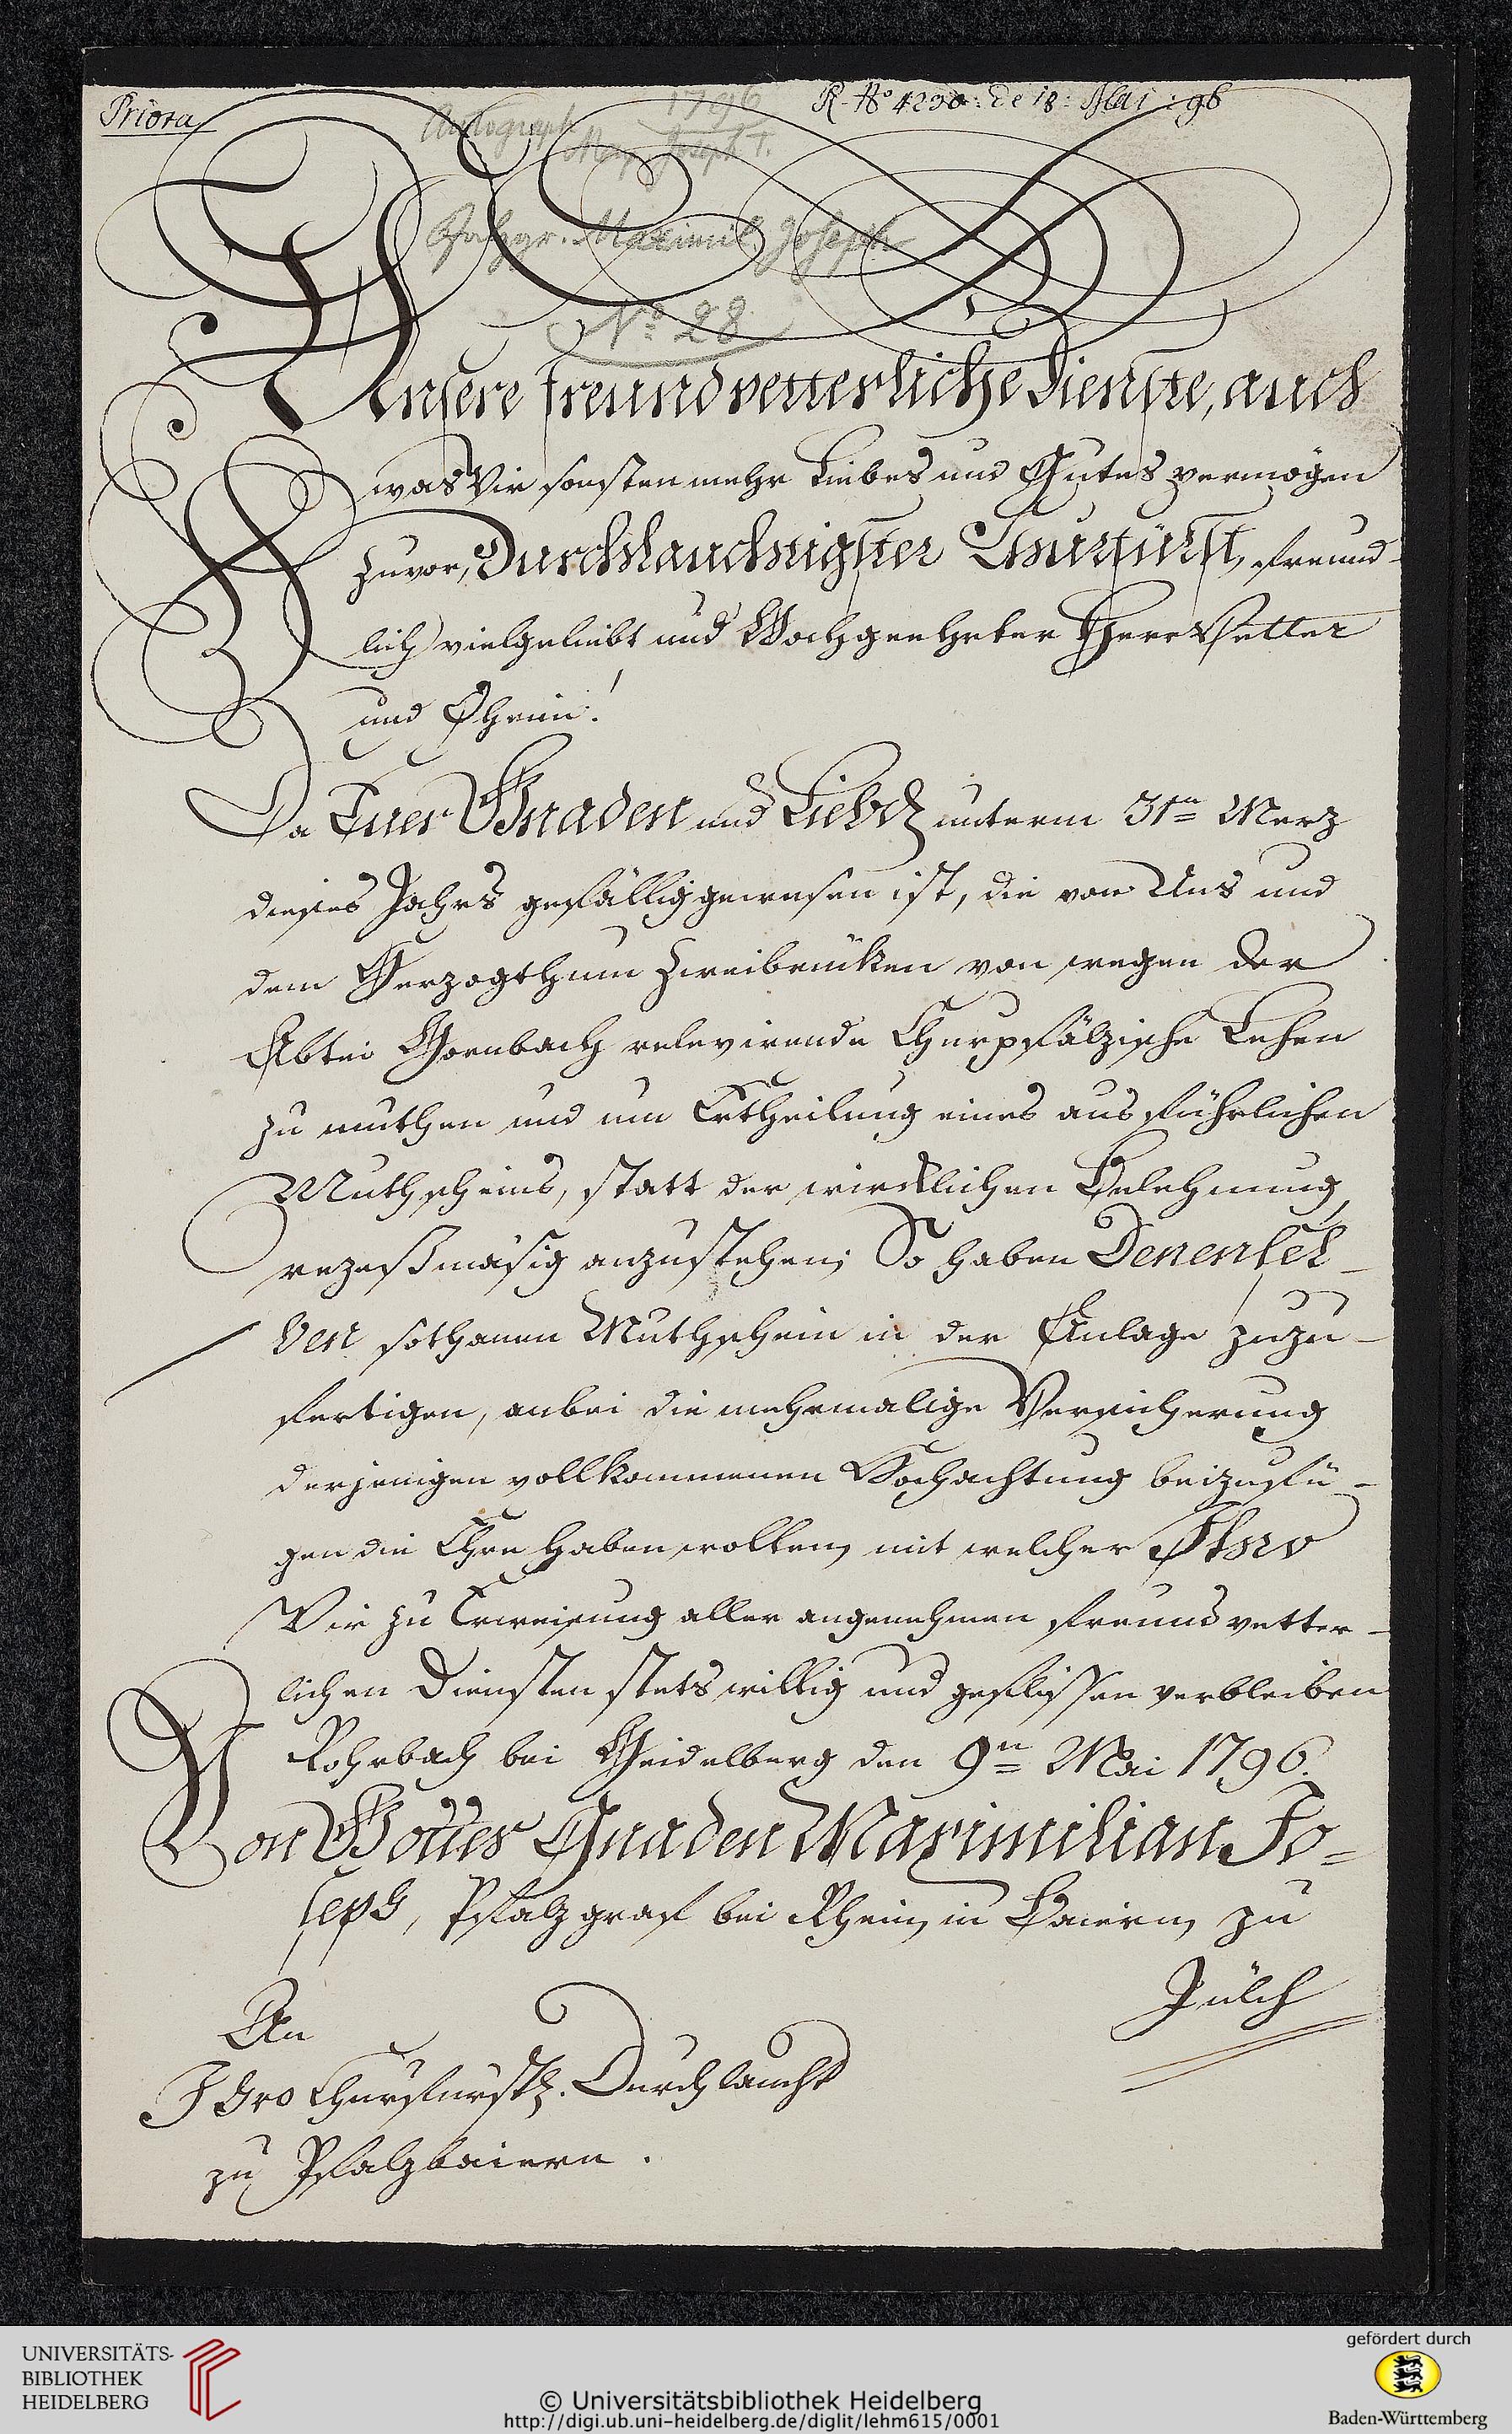 Priora
R. No 4230: de 18: Mai: 96
1796
Autograph
Max Joseph I.
Pfalzgr. Maximil. Joseph
No 28
Unsere freundvetterliche Dienste, auch
was Wir sonsten mehr Liebes und Gutes vermögen
zuvor, Durchlauchtigster Churfürst, freund-
lich vielgeliebt und Hochgeehrter Herr Vetter
und Oheim!
Da Euer Gnaden und Liebd unterm 31ten Merz
dieses Jahrs gefällig gewesen ist, die von Uns und
dem Herzogthum Zweibrüken von wegen der
Abtei Hornbach relevirende Churpfälzische Lehen
zu muthen und um Ertheilung eines ausführlichen
Muthscheins, statt der wircklichen Belehnung
rezeßmäsig anzustehen; So haben Denensel-
ben sothanen Muthschein in der Anlage zuzu-
fertigen, anbei die mehrmalige Versicherung
derjenigen vollkommenen Hochachtung beizufü-
gen die Ehre haben wollen, mit welcher Ihro
Wir zu Erweisung aller angenehmen freundvetter-
lichen Diensten stets willig und geflissen verbleiben
Rohrbach bei Heidelberg den 9ten Mai 1796.
Von Gottes Gnaden Maximilian Jo=
seph, Pfalzgraf bei Rhein, in Baiern, zu
Jülch
An
Ihro Churfürstl. Durchlaucht
zu Pfalzbaiern.
UNIVERSITÄTS-
BIBLIOTHEK
HEIDELBERG
© Universitätsbibliothek Heidelberg
http://digi.ub.uni-heidelberg.de/diglit/lehm615/0001
gefördert durch
Baden-Württemberg